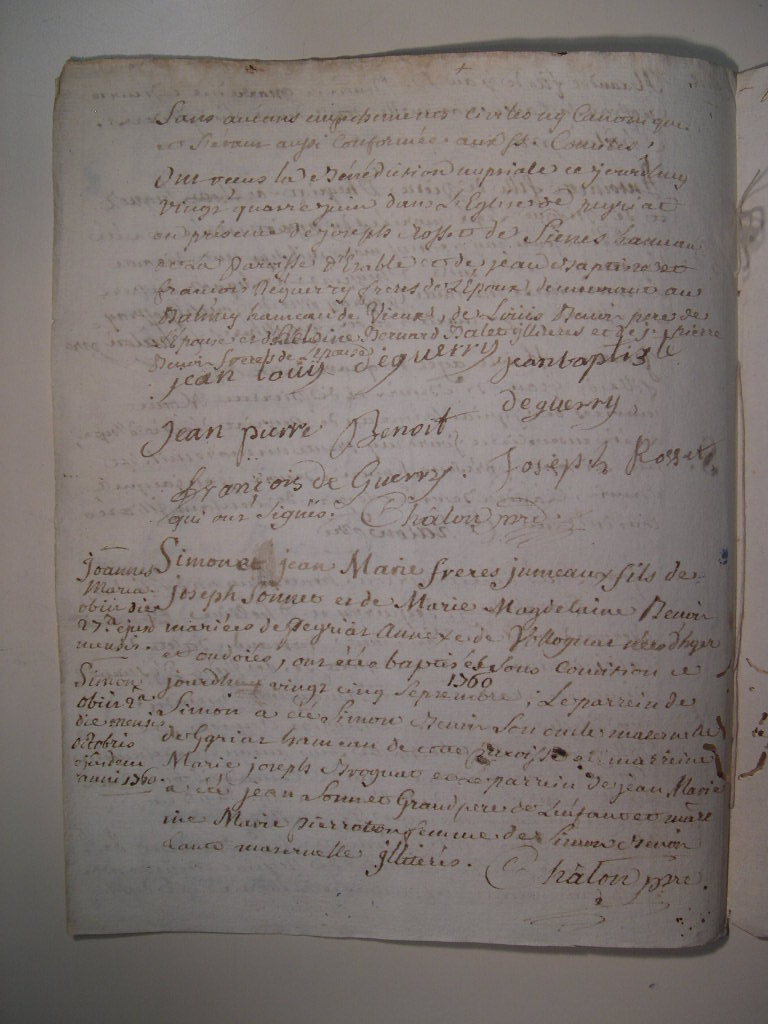 Sans aucuns empechemens civiles ny Canonique
aussi Conformée aux Sts
Ont reçus la Bénédiction nuptiale ce jourdhuy
vingt quatre juin dans L'Eglise de
en présence de joseph Rosset de hameau
de la Paroisse d' et de jean Baptiste et
francois Deguerry freres de L'Epoux, demeurant au
hameau de Vieux, de Louis Benoit pere de
L'Epouse et d' Bernard Balet yllitérés et de jn pierre
Benoit freres de L'Epouse
jean louis deguerry jeanbaptiste
deguerry
Jean pierre Benoit
françois de Guerry. Joseph Rosset
qui ont Signés. Châlon ptre
Joannes
Maria
obiit die
27ª ejusd
mensis.
Simon
obiit 2ª
die mensis
octobris
ejusdem
anni 1760.
Simon et jean Marie freres jumeaux fils de
joseph Sonnet et de Marie Magdelaine Benoit
mariés de Peyriat Annexe de Vollognat nées d'hyer
et ondoiés, ont étés baptisés Sous Condition ce
jourdhuy vingt cinq Septembre 1760 ; Le parrein de
Simon a été Simon Benoit Son oncle maternelle
de hameau de cette Paroisse et marreine
Marie joseph Broquat et Le parrein de jean Marie
a été jean Sonnet Grand pere de L'enfant et marre
ine Marie pierrotton femme de Simon Benoit
tante maternelle yllitérés. Châlon ptre.